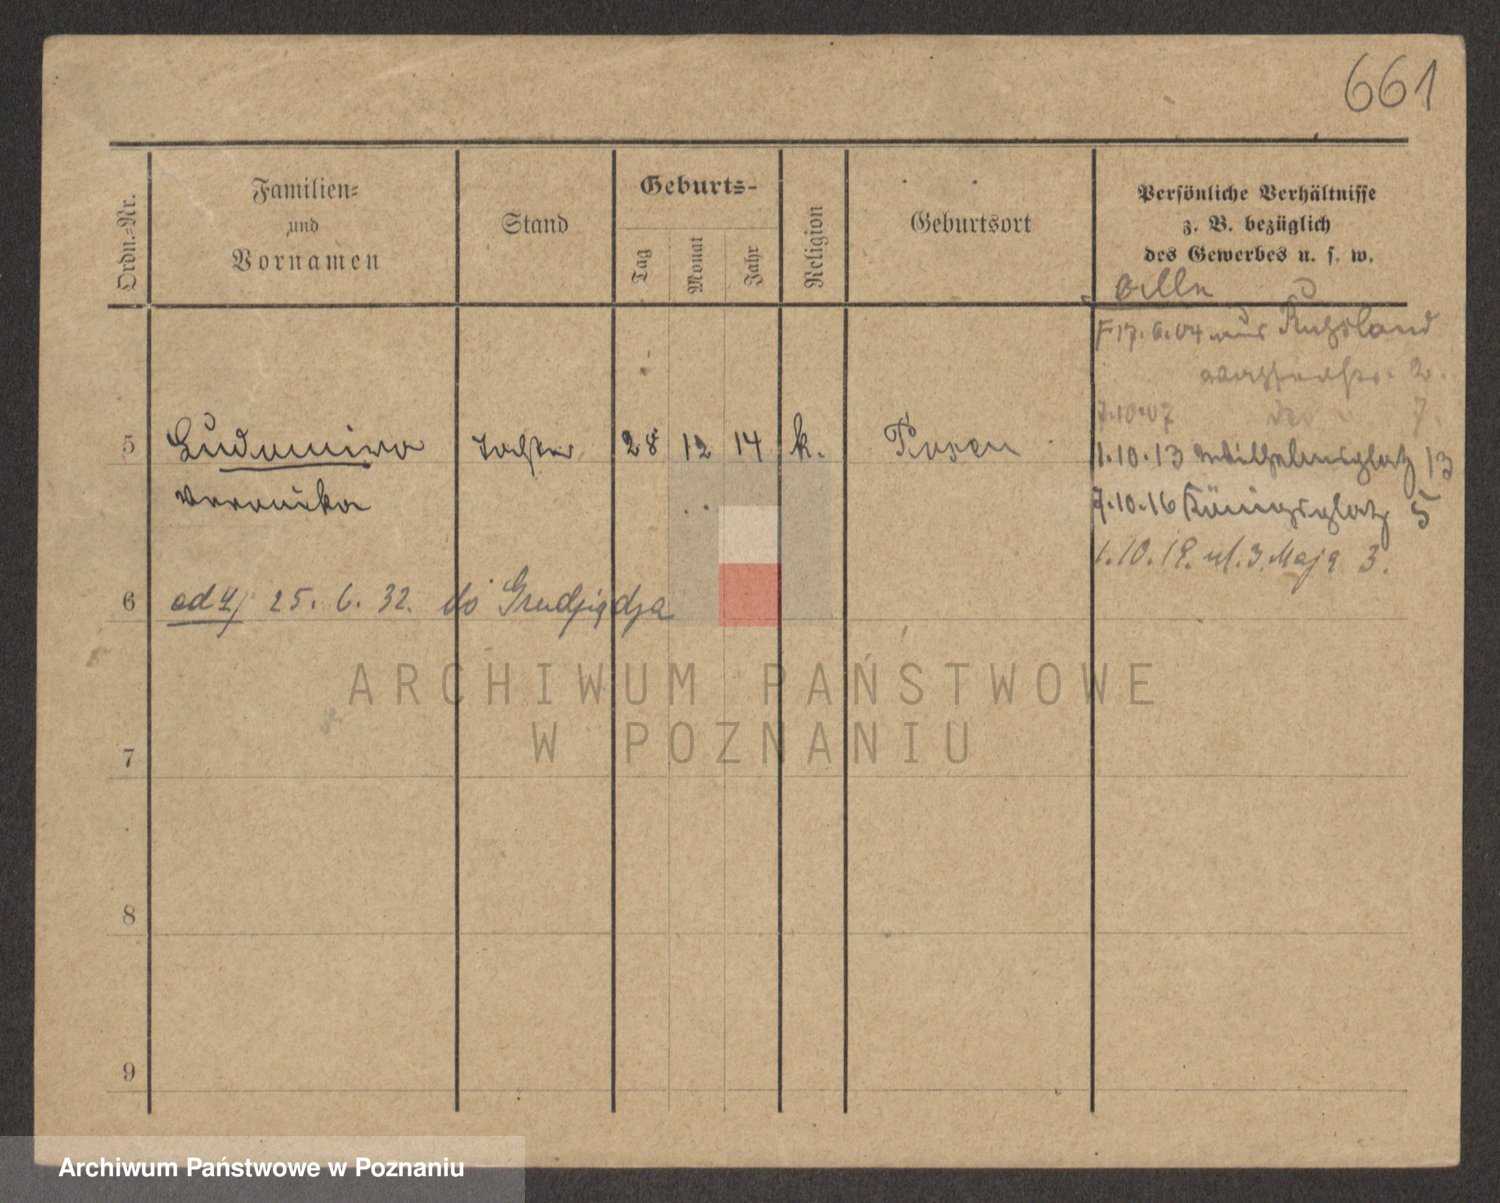 661
Ordn.-Nr.
Familien-
und
Vornamen
Stand
Geburts-
Tag
Monat
Jahr
Religion
Geburtsort
Persönliche Verhältnisse
z. B. bezüglich
des Gewerbes u. s. w.
Alle
17.6.04 aus Rußland
2.
7.10.07 do 7.
5 Ludomira Tochter 28 12 14 k. Posen
1.10.13 Wilhelmsplatz 13
Veronika
7.10.16 Königsplatz 5
1.10.19. ul. 3. Maja 3.
6 ad 4/ 25. 6. 32. do Grudziądza
7
8
9
ARCHIWUM PAŃSTWOWE
W POZNANIU
Archiwum Państwowe w Poznaniu